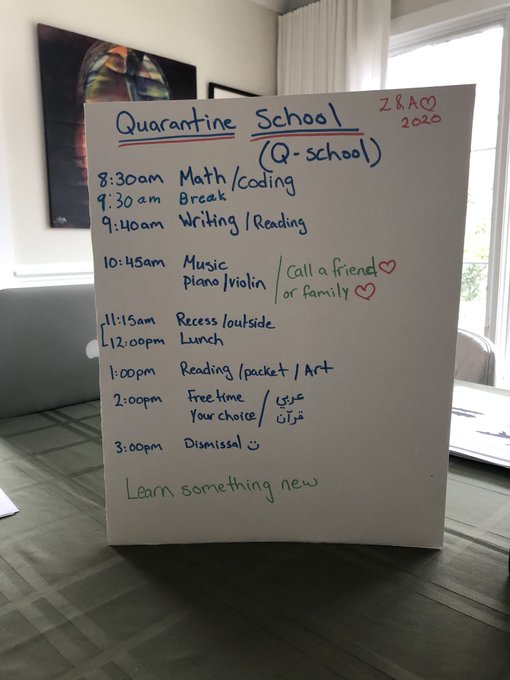 Quarantine School
(Q-school)
Z & A♡
2020
8:30am Math/coding
9:30 am Break
9:40am Writing/Reading
10:45am Music
piano/violin / Call a friend♡
or family ♡
11:15am Recess/outside
12:00pm Lunch
1:00pm Reading/packet/Art
2:00pm Free time / عربي
Your choice / قرآن
3:00pm Dismissal ت
Learn something new